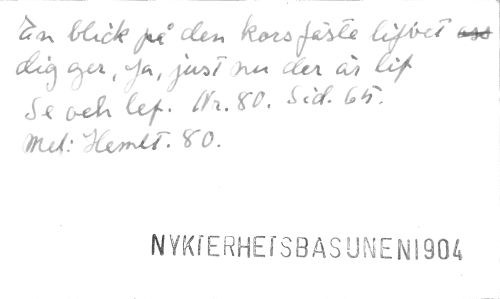 En blick på den korsfäste lifvet
dig ger, Ja, just nu der är lif
Se och lef. Nr. 80. Sid. 65.
Mel: Hemlt. 80.
NYKTERHETSBASUNEN1904